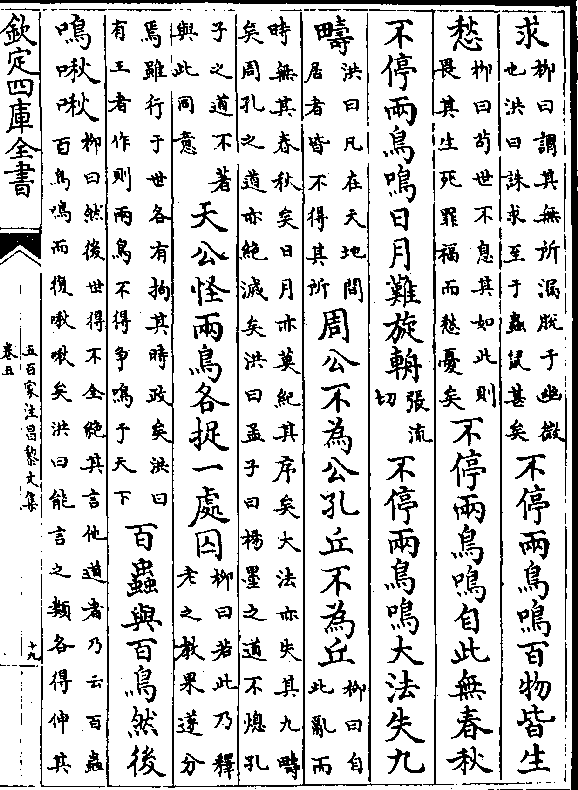 求柳曰謂其無所漏脫于幽微也洪曰誅求至于蟲鼠甚矣不停兩鳥鳴百物皆生
愁柳曰苟世不息其如此則畏其生死罪福而愁憂矣不停兩鳥鳴自此無春秋
不停兩鳥鳴日月難旋輈張流切不停兩鳥鳴大法失九
疇洪曰凡在天地間居者皆不得其所周公不為公孔丘不為丘柳曰自此亂而
時無其春秋矣日月亦莫紀其序矣大法亦失其九疇矣周孔之道亦絶滅矣洪曰孟子曰楊墨之道不熄孔
子之道不著與此同意天公怪兩鳥各捉一處囚柳曰若此乃釋老之教果遂分
焉雖行于世各有拘其時政矣洪曰有王者作則兩鳥不得爭鳴于天下百蟲與百鳥然後
鳴啾啾柳曰然後世得不全絶其言他道者乃云百蟲百鳥鳴而復啾啾矣洪曰能言之類各得伸其
欽定四庫全書
五百家注昌黎文集
卷五
十九